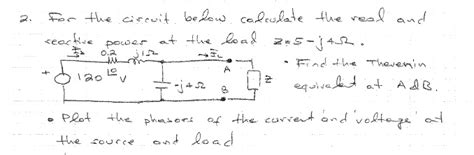 2. For the circuit below calculate the real and
reactive power at the load z=5-j4Ω.
0.2 j1Ω
+ 120 ∠0 V
-j4Ω
A
B
Z
• Find the Thevenin
equivalent at A & B.
• Plot the phasors of the current and voltage at
the source and load